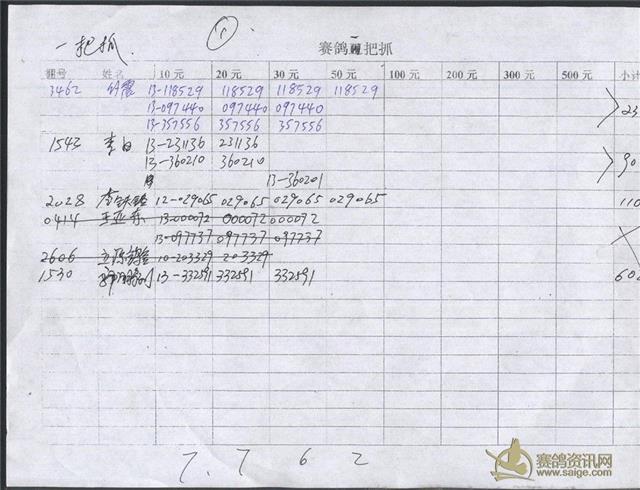 一把抓 ①
赛鸽 把抓
棚号 姓名 10元 20元 30元 50元 100元 200元 300元 500元 小计
3462 13-118529 118529 118529 118529
13-097440 097440 097440 23
13-357556 357556 357556
1543 李白 13-231136 231136
13-360210 360210 90
13-360201
2028 12-029065 029065 029065 029065 110
0414 王亚东 13-000072 000072 000072
13-097737 097737 097737
2606 10-203329 203329
1530 13-332591 332591 332591 60
7.7 6 2
赛鸽资讯网
www.saige.com